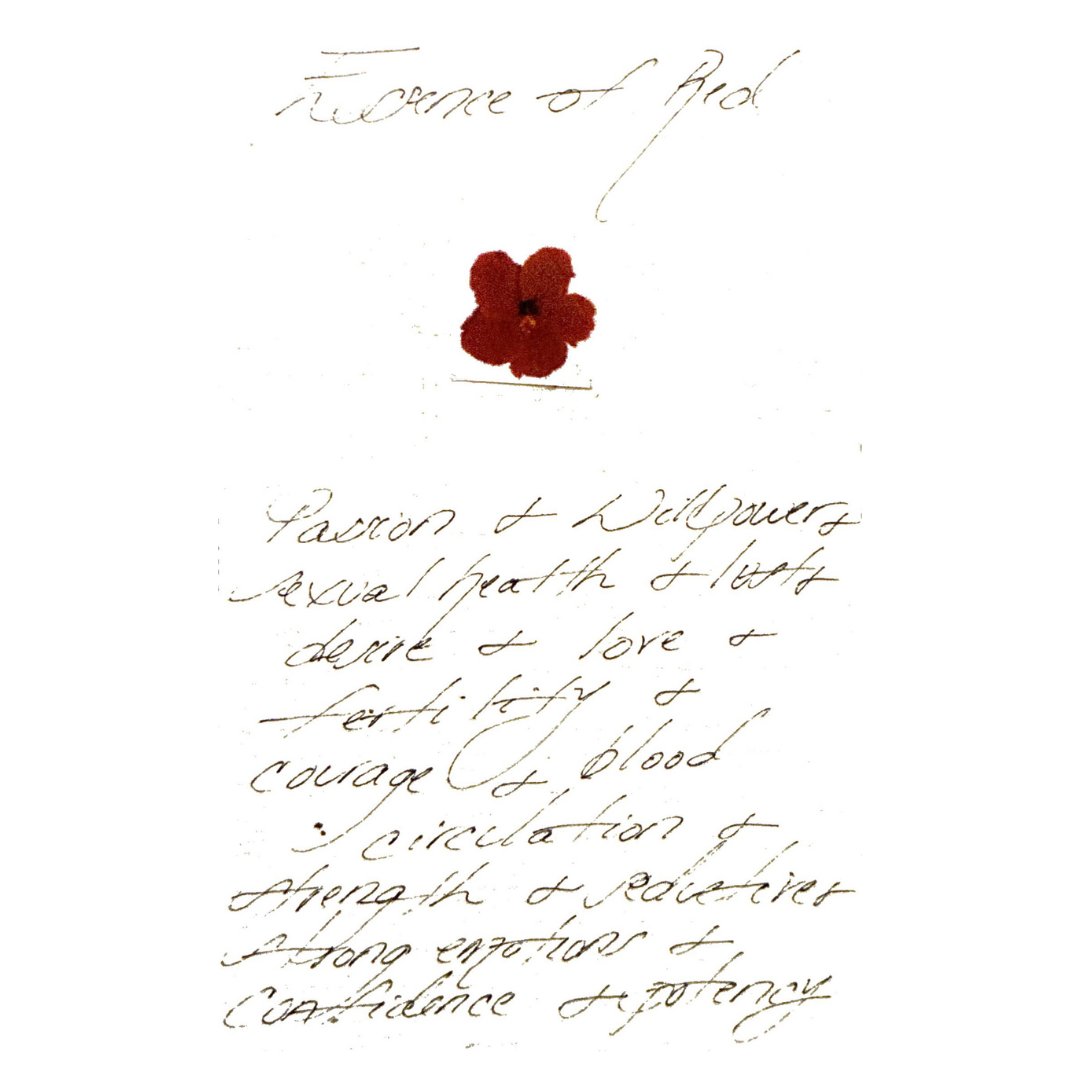 Essence of Red
Passion & Willpower &
sexual health & lust &
desire & love &
fertility &
courage & blood
circulation &
strength & seductive &
strong emotions &
Confidence & potency